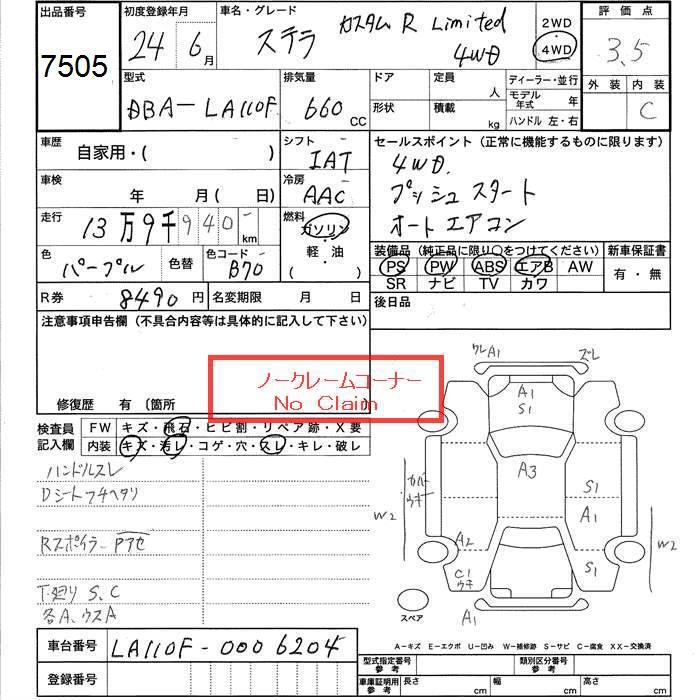 出品番号 初度登録年月 車名・グレード 2WD 評価点
7505 24 6月 ステラ カスタム R Limited 4WD 4WD 3.5
外装 内装
C
型式 排気量 ドア 定員 人 ディーラー・並行
DBA-LA110F 660 CC 形状 積載 kg モデル年式 年
ハンドル 左・右
車歴 自家用・( ) シフト IAT セールスポイント (正常に機能するものに限ります)
車検 年 月( 日) 冷房 AAC 4WD.
プッシュスタート
走行 13万9千940 km 燃料 ガソリン オートエアコン
軽・油
・( )
色 パープル 色替 色コード B70 装備品 (純正品に限り○をつけてください) 新車保証書
PS PW ABS エアB AW 有・無
SR ナビ TV カワ
R券 8490円 名変期限 月 日 後日品
注意事項申告欄 (不具合内容等は具体的に記入して下さい)
ノークレームコーナー
No Claim
修復歴 有 〔箇所
検査員記入欄 FW キズ・飛石・ヒビ割・リペア跡・X要
内装 キズ・汚レ・コゲ・穴・スレ・キレ・破レ
ハンドルスレ
Dシートフチヘタリ
Rスポイラー Pアセ
下廻り S、C
各A、ウスA
ワレA1 ズレ
A1
S1
A3
カバーウキ
S1
A1
W2 W2
A2
C1 ウキ
S1
A1
スペア
A-キズ E-エクボ U-凹み W-補修跡 S-サビ C-腐食 XX-交換済
車台番号 LA110F-0006204
登録番号
型式指定番号 参考 類別区分番号 参考
車庫証明用参考 長さ cm 幅 cm 高さ cm